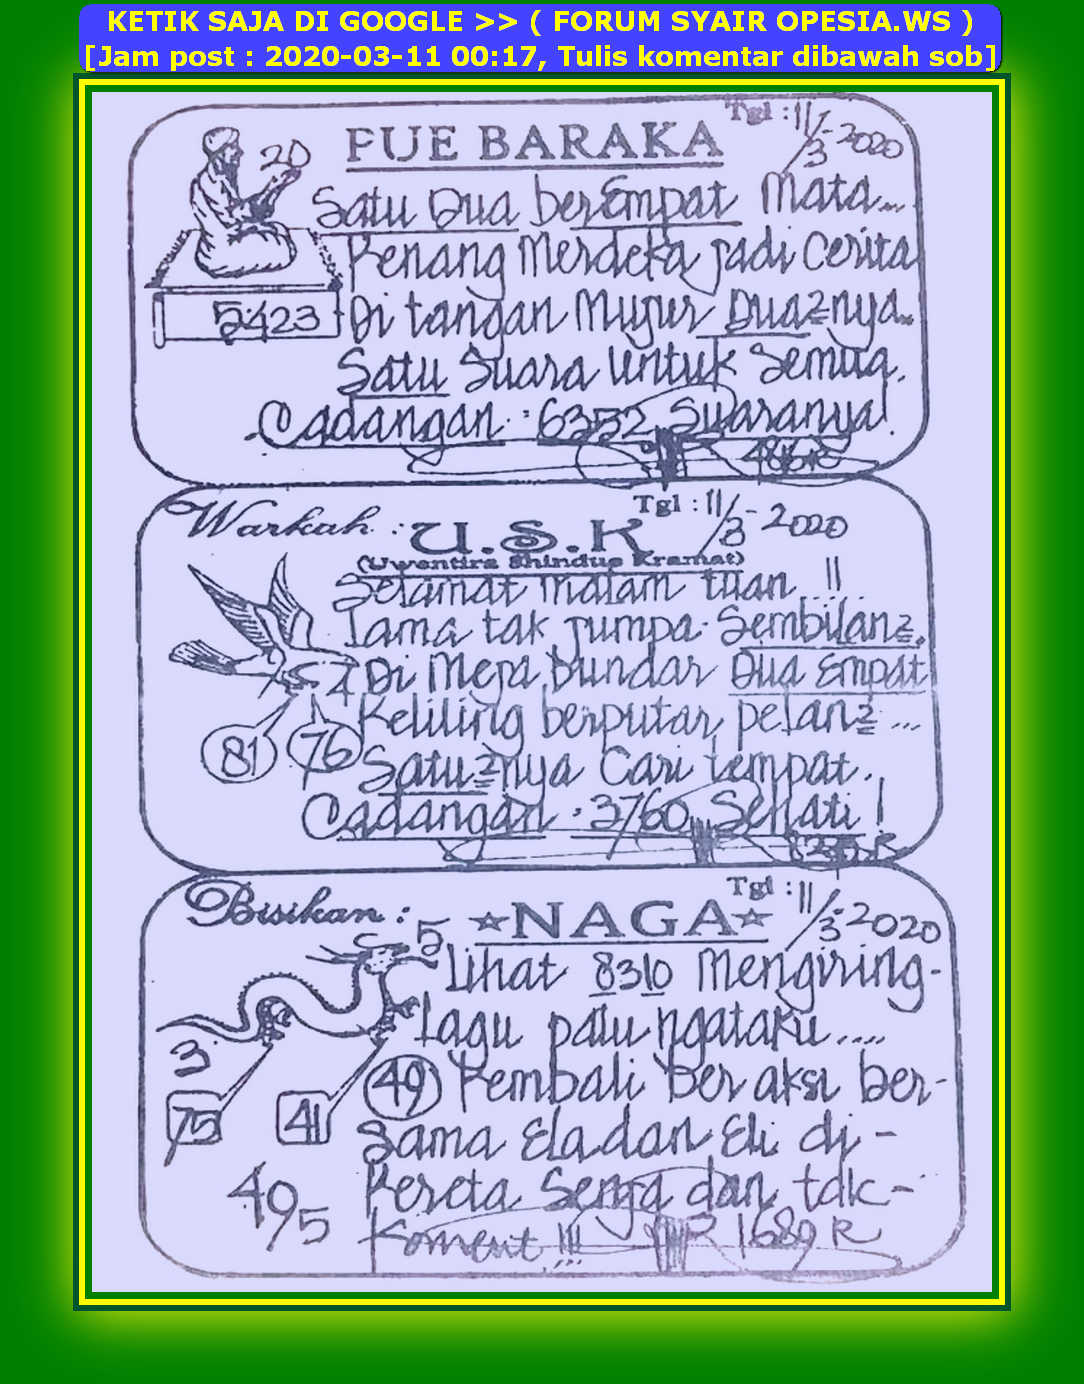 KETIK SAJA DI GOOGLE >> ( FORUM SYAIR OPESIA.WS )
[Jam post : 2020-03-11 00:17, Tulis komentar dibawah sob]
Tgl : 11/3-2020
FUE BARAKA
20
Satu Dua berEmpat Mata...
Kenang Merdeka jadi Cerita
5423
Di tangan Mujur Dua2nya...
Satu Suara Untuk Semua.
Cadangan : 6352 Suaranya!
Tgl : 11/3-2020
Warkah : U.S.K
(Uwentira Shindue Kramat)
Selamat malam tuan...!!
Lama tak jumpa Sembilan2.
4 Di Meja bundar Dua Empat
Keliling berputar pelan2...
81 76
Satu2nya Cari tempat.
Cadangan : 3760 Sehati!
Tgl : 11/3-2020
Bisikan : NAGA
5
Lihat 8310 Mengiring-
Lagu palu ngataku....
3
49 Kembali ber aksi ber-
75 41
Sama Ela dan Eli di-
495
Kereta Senja dan tdk-
Koment !!! R 1689 R